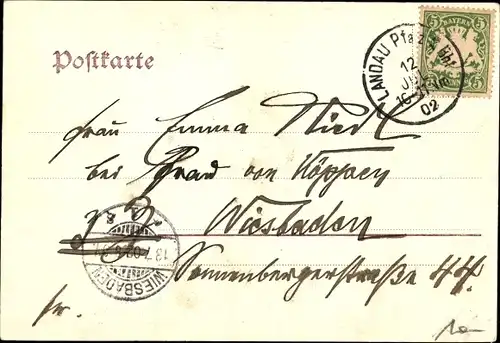 Postkarte
5 BAYERN 5
LANDAU Pfalz Bhf
12
JUL
02
Frau Emma
bei Frau von Köppen
Wiesbaden
Sonnenbergerstraße 44.
fr.
WIESBADEN
13.7.02